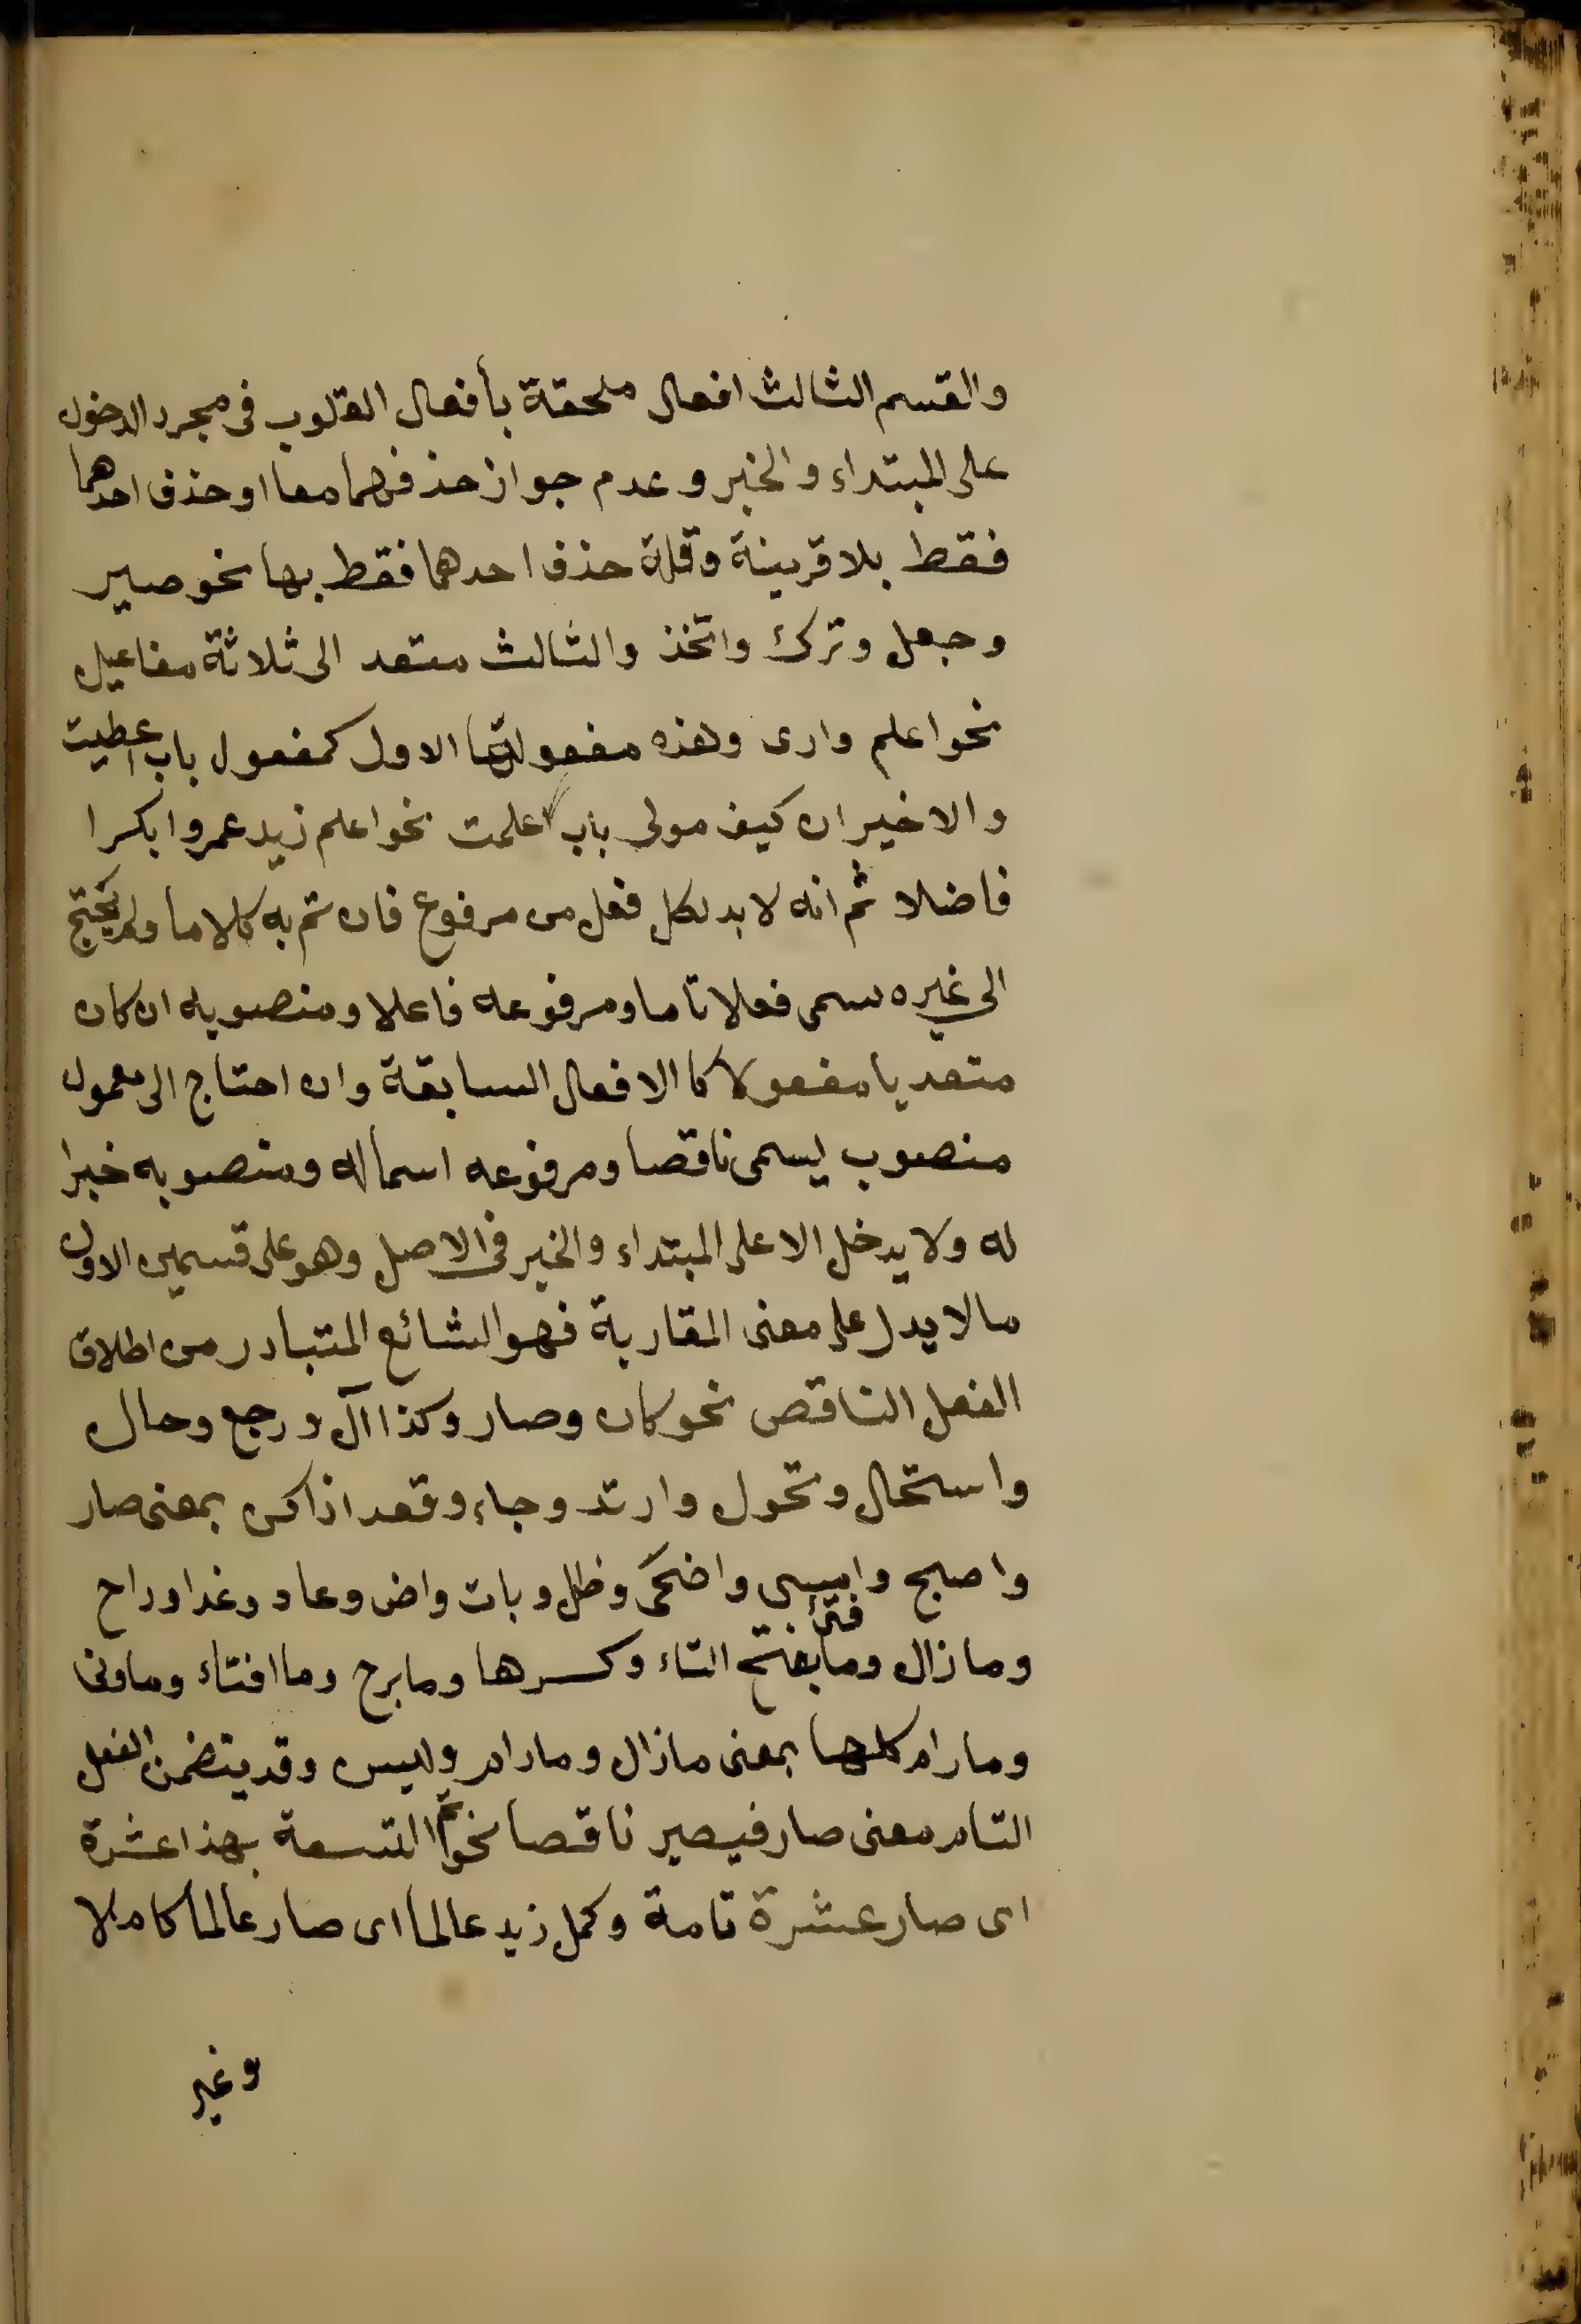 والقسم الثالث افعال ملحقة بأفعال القلوب فى مجرد الدخول
على المبتداء والخبر وعدم جواز حذفهما معا او حذف احدهما
فقط بلا قرينة وقلة حذف احدهما فقط بها نحو صير
وجعل وترك واتخذ والثالث متعد الى ثلاثة مفاعيل
نحوا علم وارى وهذه مفعولها الاول كمفعول باب اعطيت
والاخيران كيف مولى باب اعلمت نحو اعلم زيد عمروا بكرا
فاضلا ثم انه لا بد لكل فعل من مرفوع فان تم به كلاما ولم يحتج
الى غيره سمى فعلا تاما ومرفوعه فاعلا ومنصوبه ان كان
متعديا مفعولا كا الافعال السابقة وان احتاج الى معمول
منصوب يسمى ناقصا ومرفوعه اسما له ومنصوبه خبرا
له ولا يدخل الا على المبتداء والخبر فى الاصل وهو على قسمين الاول
مالا يدل على معنى المقاربة فهو الشائع المتبادر من اطلاق
الفعل الناقص نحو كان وصار وكذا آل ورجع وحال
واستحال وتحول وارتد وجاء وقعد اذا كن بمعنى صار
واصبح وامسى واضحى وظل وبات واض وعاد وغدا وراح
ومازال وما فتئ بفتح التاء وكسرها ومابرح وما افتاء وماونى
ومارام كلها بمعنى مازال ومادام وليس وقد يتضمن الفعل
التام معنى صار فيصير ناقصا نحو تم التسعة بهذا عشرة
اى صار عشرة تامة وكمل زيد عالما اى صار عالما كاملا
وغير